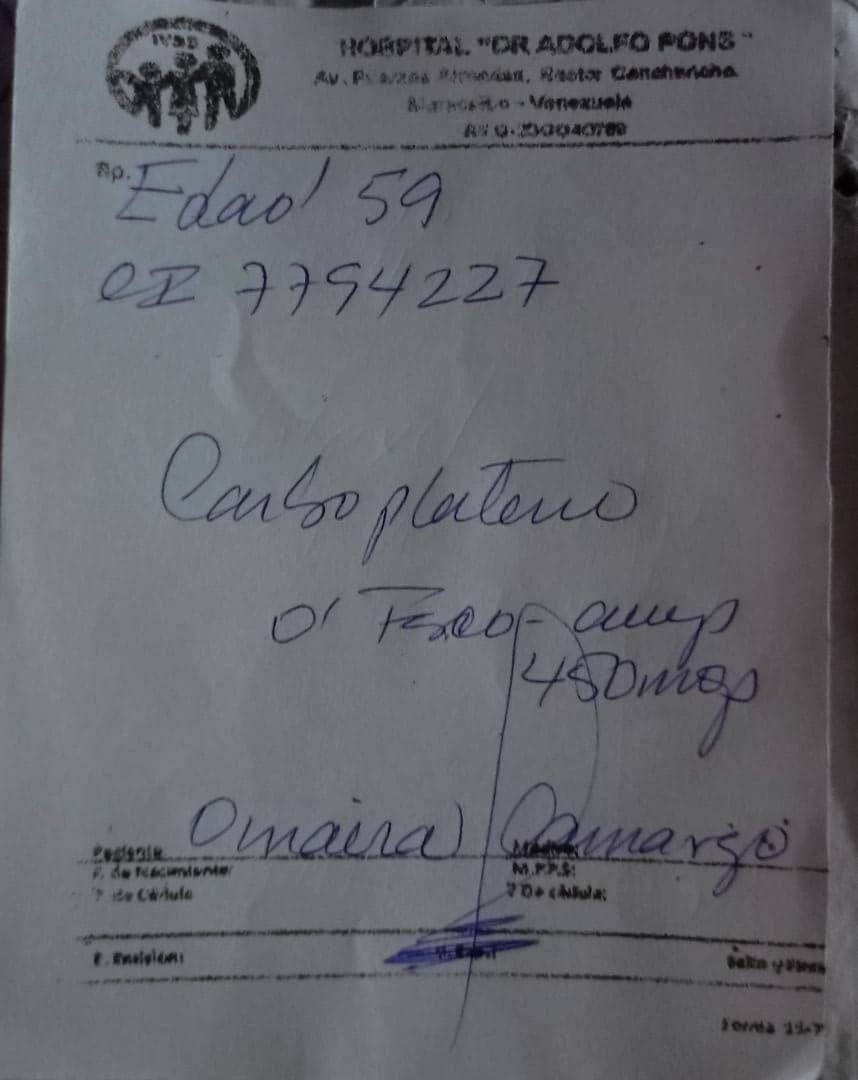 IVSS
HOSPITAL "DR ADOLFO PONS"
Av. Sector Canchancha
Maracaibo - Venezuela
Rp. Edad 59
CI 7794227
Carboplateno
o' Fsco - amp
450mgs
Omaira Camargo
Paciente Médico:
F. de Nacimiento: M.P.P.S:
? de Cédula ? De cédula:
F. Emisión: Sello y Firma
Forma 15-?